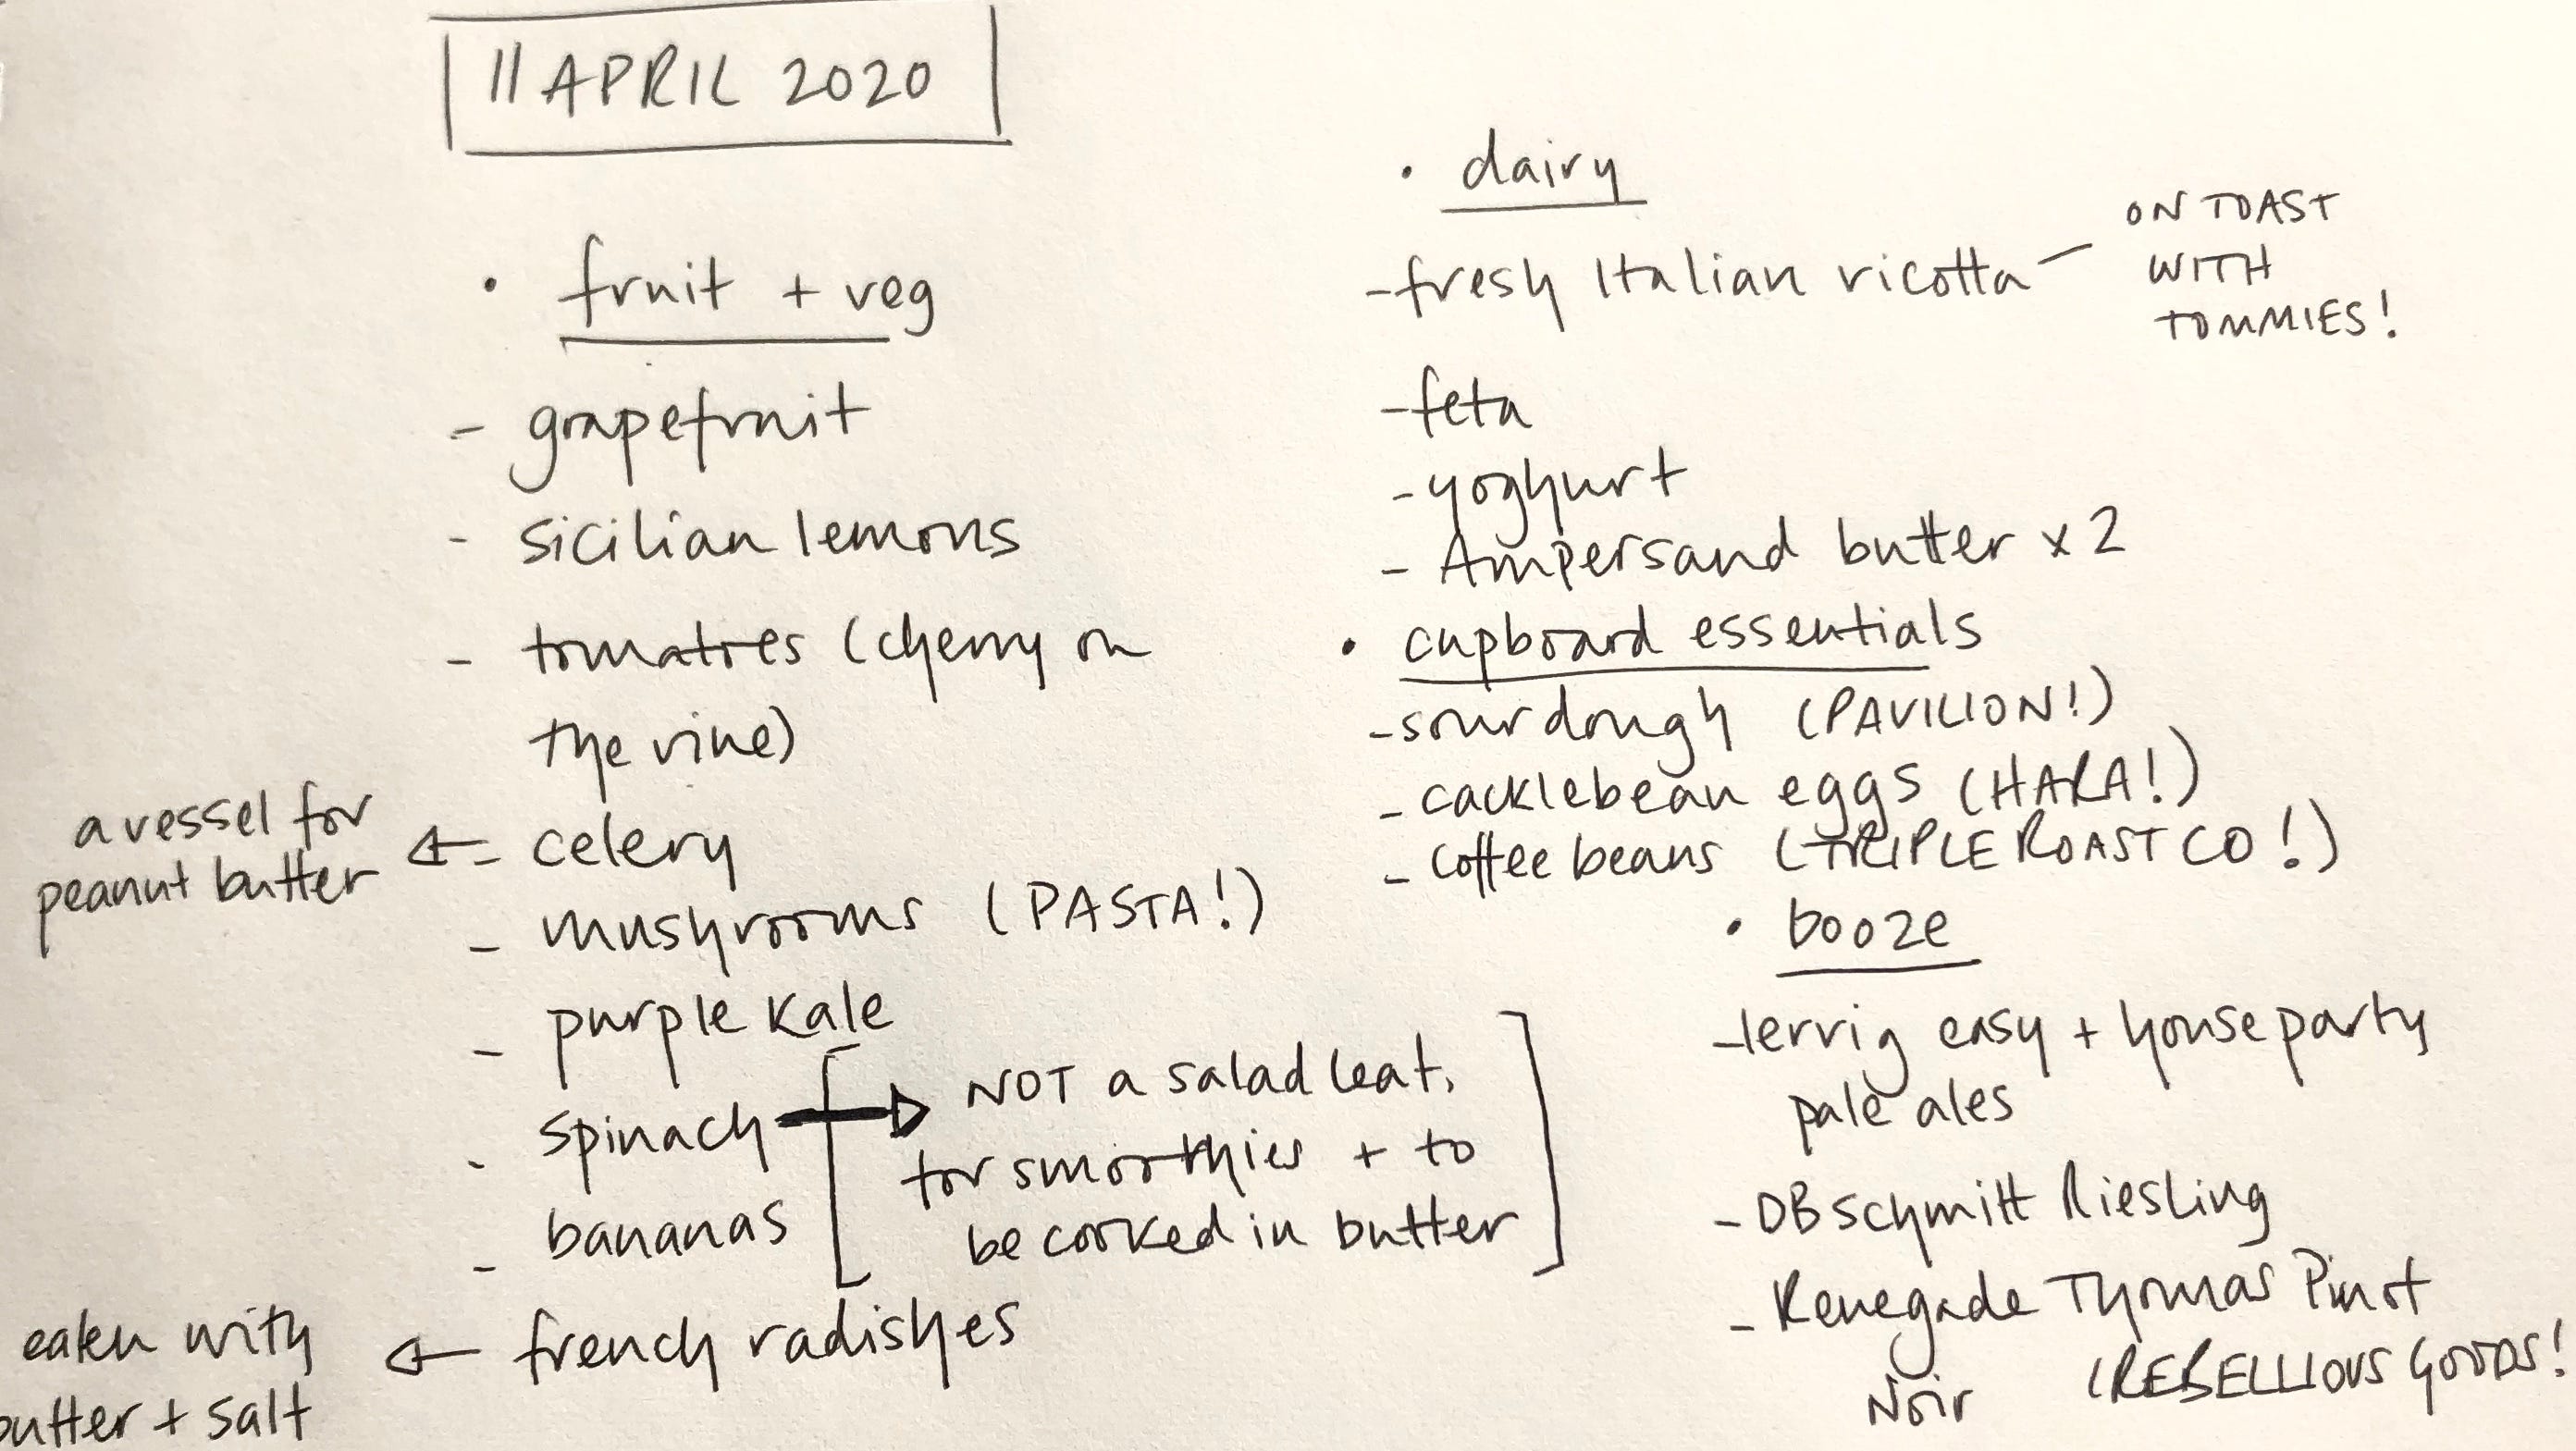 11 APRIL 2020
• fruit + veg
- grapefruit
- sicilian lemons
- tomatoes (cherry on
the vine)
a vessel for
peanut butter
- celery
- mushrooms (PASTA!)
- purple kale
- spinach
NOT a salad leaf.
for smoothies + to
be cooked in butter
- bananas
french radishes
eaten with
butter + salt
• dairy
- fresh Italian ricotta
ON TOAST
WITH
TOMMIES!
- feta
- yoghurt
- Ampersand butter x 2
• cupboard essentials
- sourdough (PAVILION!)
- cacklebean eggs (HARA!)
- coffee beans (TRIPLE ROAST CO!)
• booze
- lervig easy + house party
pale ales
- DB schmitt Riesling
- Renegade Thomas Pinot
Noir (REBELLIOUS GOODS!